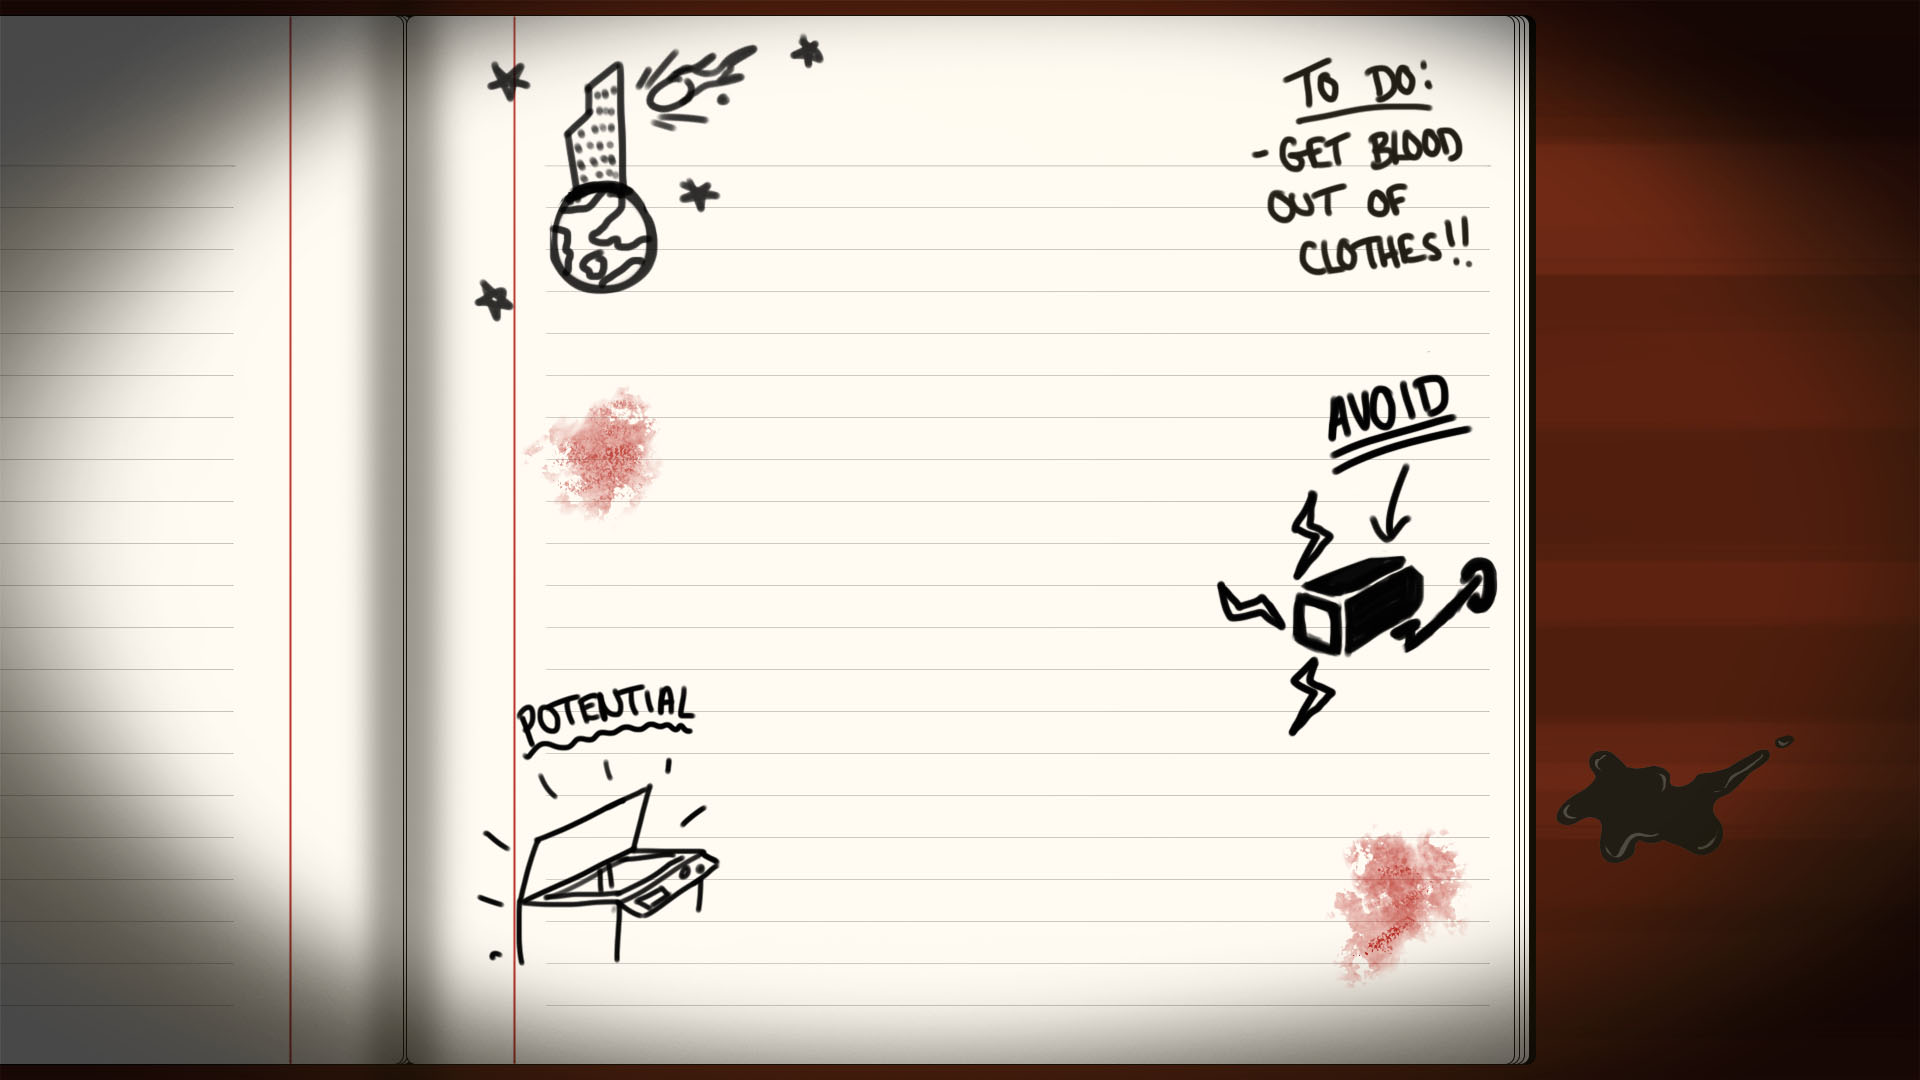 TO DO:
- GET BLOOD
OUT OF
CLOTHES!!
AVOID
POTENTIAL